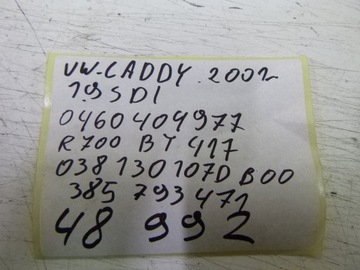 VW.CADDY.2002
1.9 SDI
0460404977
R700 BT 417
038130107D B00
385 793 471
48 992